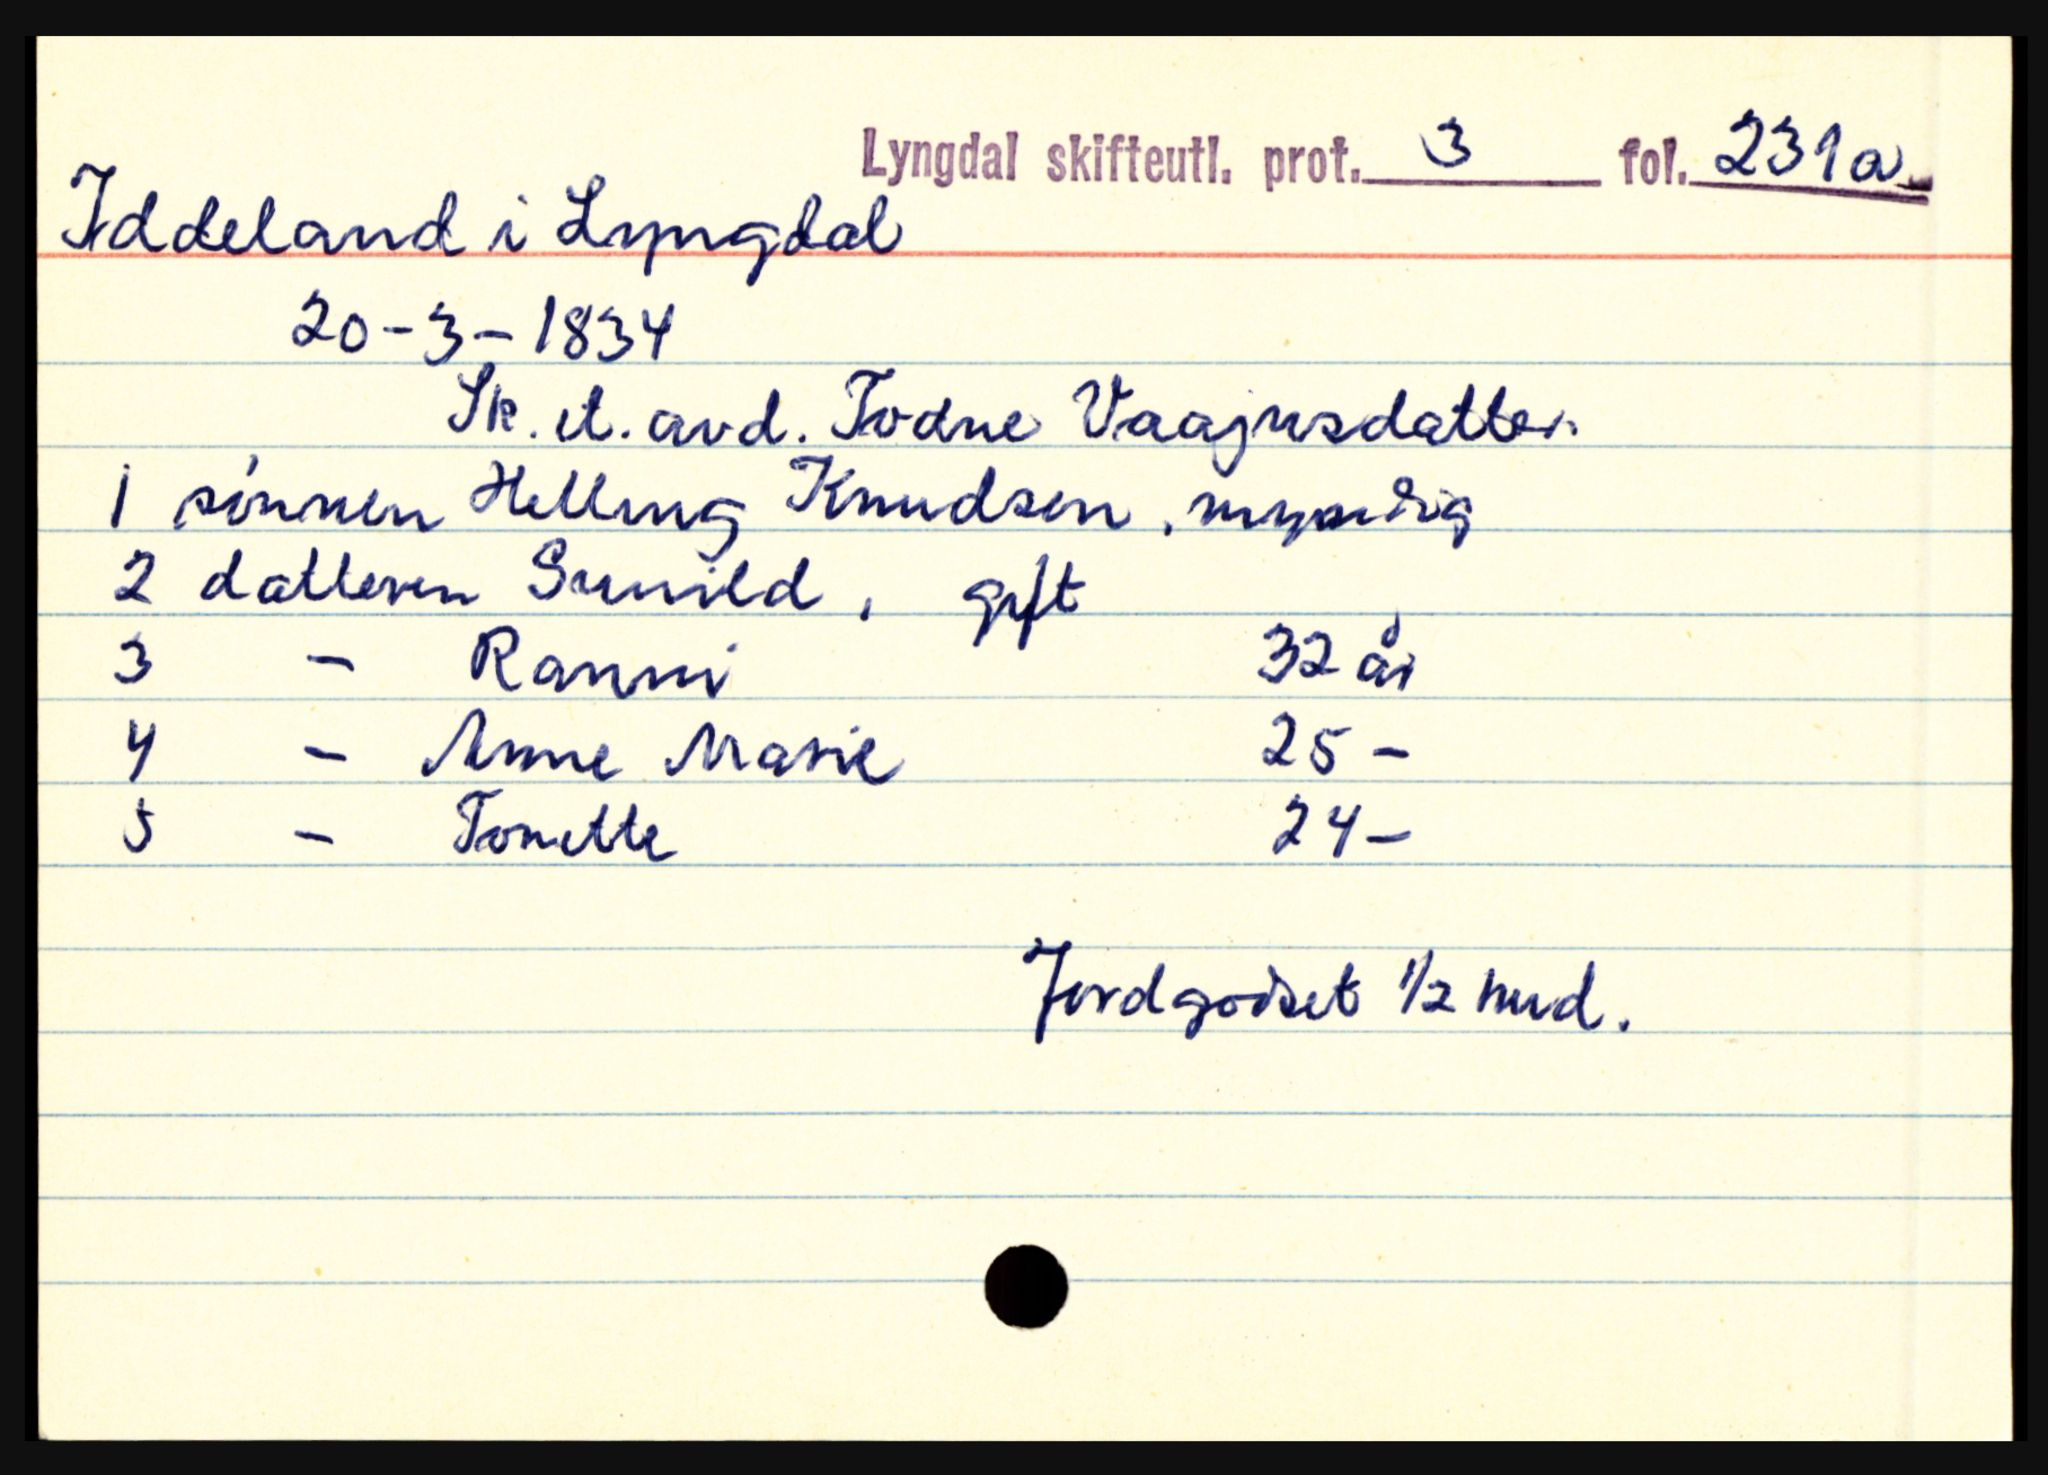 Lyngdal skifteutl. prot. 3 fol. 231a
Iddeland i Lyngdal
20-3-1834
Sk. et. avd. Todne Vaajusdatter.
1 sönnen Helling Knudsen, myndig
2 datteren Gunild, gift
3 - Ranni 32 år
4 - Anne Marie 25 -
5 - Tonette 24 -
Jordgodset 1/2 hud.